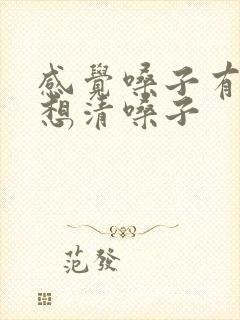 感覺嗓子有
想清嗓子
范發